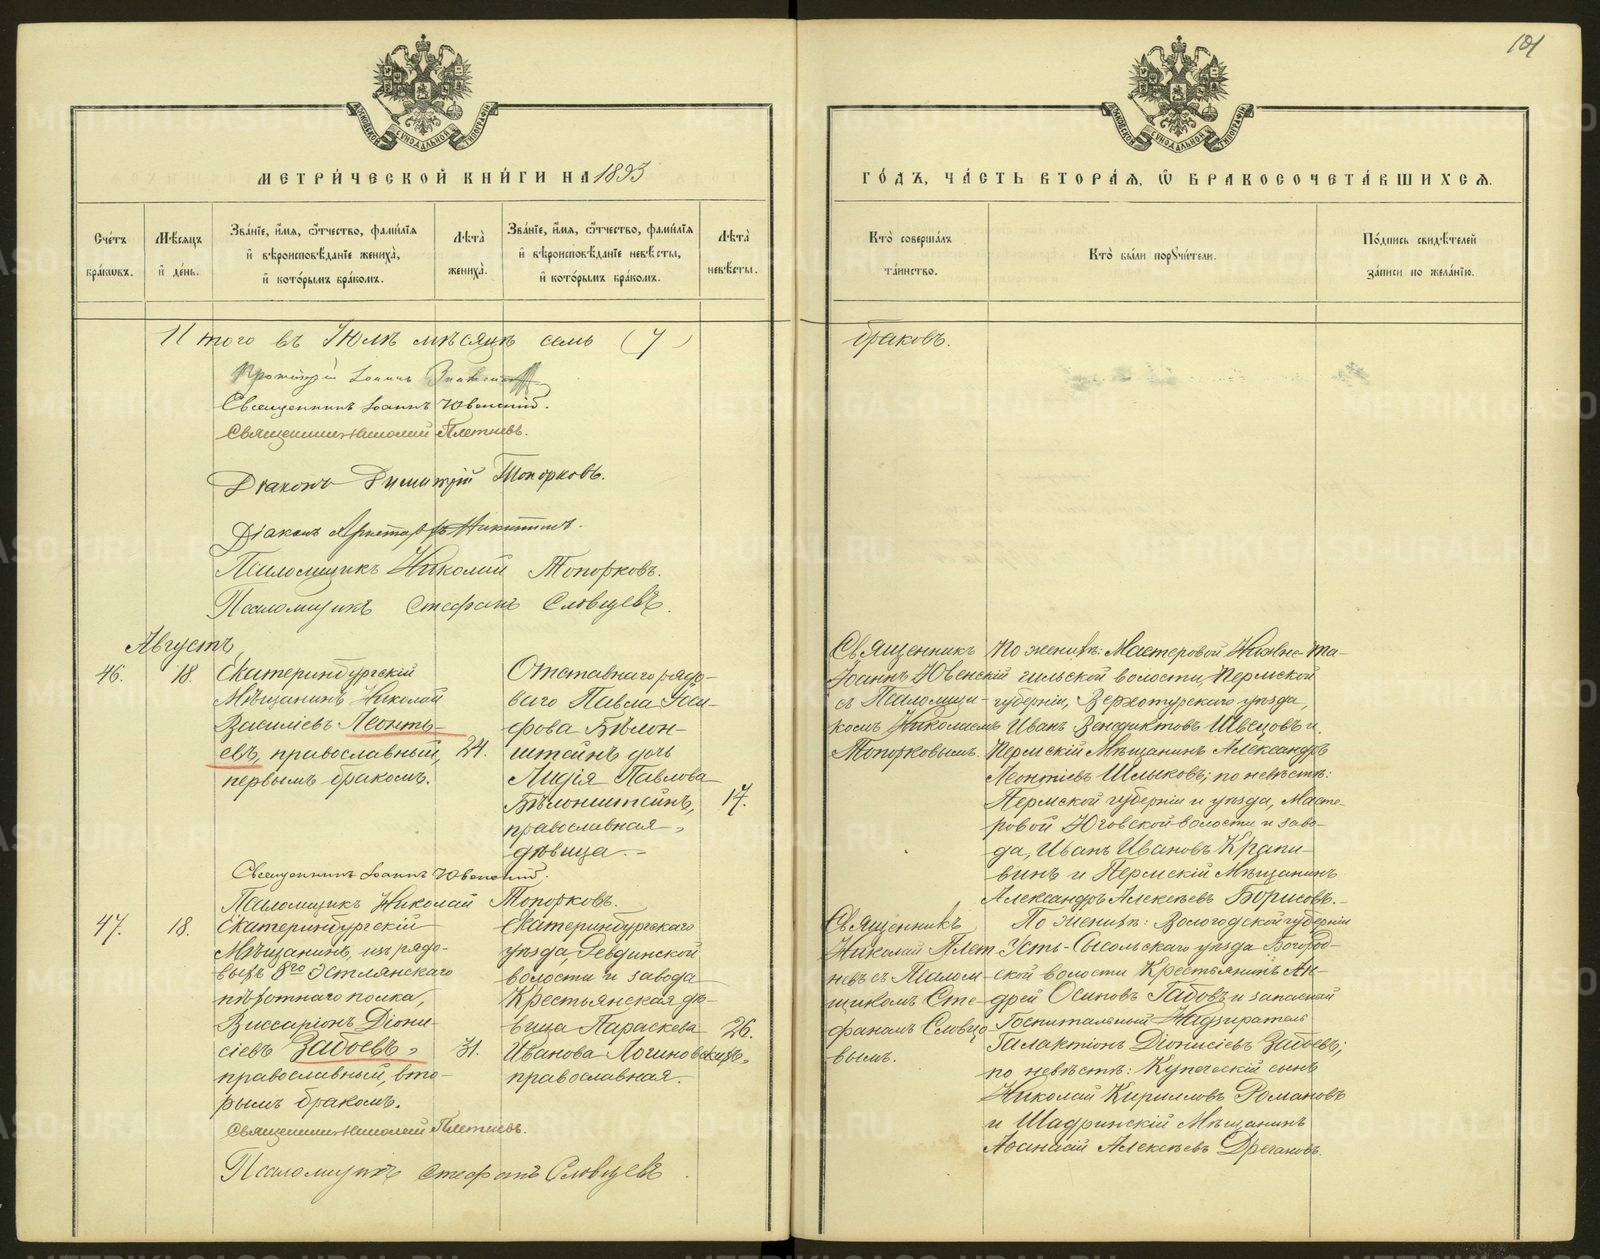 101
МЕТРИ́ЧЕСКОЙ КНИ́ГИ НА 1893
ГО́ДЪ, ЧА́СТЬ ВТОРА́Ѧ, Ѽ БРАКОСОЧЕТА́ВШИХСѦ.
Сче́тъ бра́кѡвъ.
Мѣ́сѧцъ и҆ де́нь.
Зва́нїе, и҆́мѧ, ѻ҆́тчество, фами́лїѧ
и҆ вѣроисповѣ́данїе жениха̀,
и҆ кото́рымъ бра́комъ.
Лѣта̀ жениха̀.
Зва́нїе, и҆́мѧ, ѻ҆́тчество, фами́лїѧ
и҆ вѣроисповѣ́данїе невѣ́сты,
и҆ кото́рымъ бра́комъ.
Лѣта̀ невѣ́сты.
Кто̀ соверша́лъ
та́инство.
Кто̀ бы́ли порꙋчи́тели.
По́дпись свидѣ́телей
за́писи по жела́нїю.
Итого въ Юлѣ мѣсяцѣ семь (7)
браковъ.
Протоіерей Іоаннъ
Священникъ Іоаннъ Ювенскій.
Священникъ Николай Плетневъ.
Діаконъ Димитрій Топорковъ.
Діаконъ Никитинъ.
Псаломщикъ Николай Топорковъ.
Псаломщикъ Стефанъ Словцевъ.
Августъ
46.
18.
Екатеринбургскій
Мѣщанинъ Николай
Василіевъ Леонть-
евъ, православный,
первымъ бракомъ.
24.
Отставнаго рядо-
ваго Павла Іоси-
фова Бѣлон-
штейнъ дочь
Лидія Павлова
Бѣлонштейнъ,
православная,
дѣвица.
17.
Священникъ
Іоаннъ Ювенскій
съ Псаломщи-
комъ Николаемъ
Топорковымъ.
По женихѣ: Мастеровой Нижне-Та-
гильской волости, Пермской
губерніи, Верхотурскаго уѣзда,
Иванъ Венедиктовъ Швецовъ и
Пермскій Мѣщанинъ Александръ
Леонтіевъ Шлыковъ; по невѣстѣ:
Пермской губерніи и уѣзда, Масте-
ровой Юговской волости и заво-
да, Иванъ Ивановъ Крапи-
винъ и Пермскій Мѣщанинъ
Александръ Алексѣевъ Борисовъ.
Священникъ Іоаннъ Ювенскій.
Псаломщикъ Николай Топорковъ.
47.
18.
Екатеринбургскій
Мѣщанинъ, изъ рядо-
выхъ 8го Эстлянскаго
пѣхотнаго полка,
Виссаріонъ Діони-
сіевъ Забоевъ,
православный, вто-
рымъ бракомъ.
31.
Екатеринбургскаго
уѣзда, Ревдинской
волости и завода
Крестьянская дѣ-
вица Параскева
Иванова Логиновскихъ,
православная.
26.
Священникъ
Николай Плет-
невъ съ Псалом-
щикомъ Сте-
фаномъ Словцо-
вымъ.
По женихѣ: Вологодской губерніи
Усть-Сысольскаго уѣзда Богород-
ской волости Крестьянинъ Ан-
дрей Осиповъ Габовъ и запасной
Госпитальный Надзиратель
Галактіонъ Діонисіевъ Забоевъ;
по невѣстѣ: Купеческій сынъ
Николай Кирилловъ Романовъ
и Шадринскій Мѣщанинъ
Аѳанасій Алексѣевъ Дрегановъ.
Священникъ Николай Плетневъ.
Псаломщикъ Стефанъ Словцевъ.
METRIKI.GASO-URAL.RU